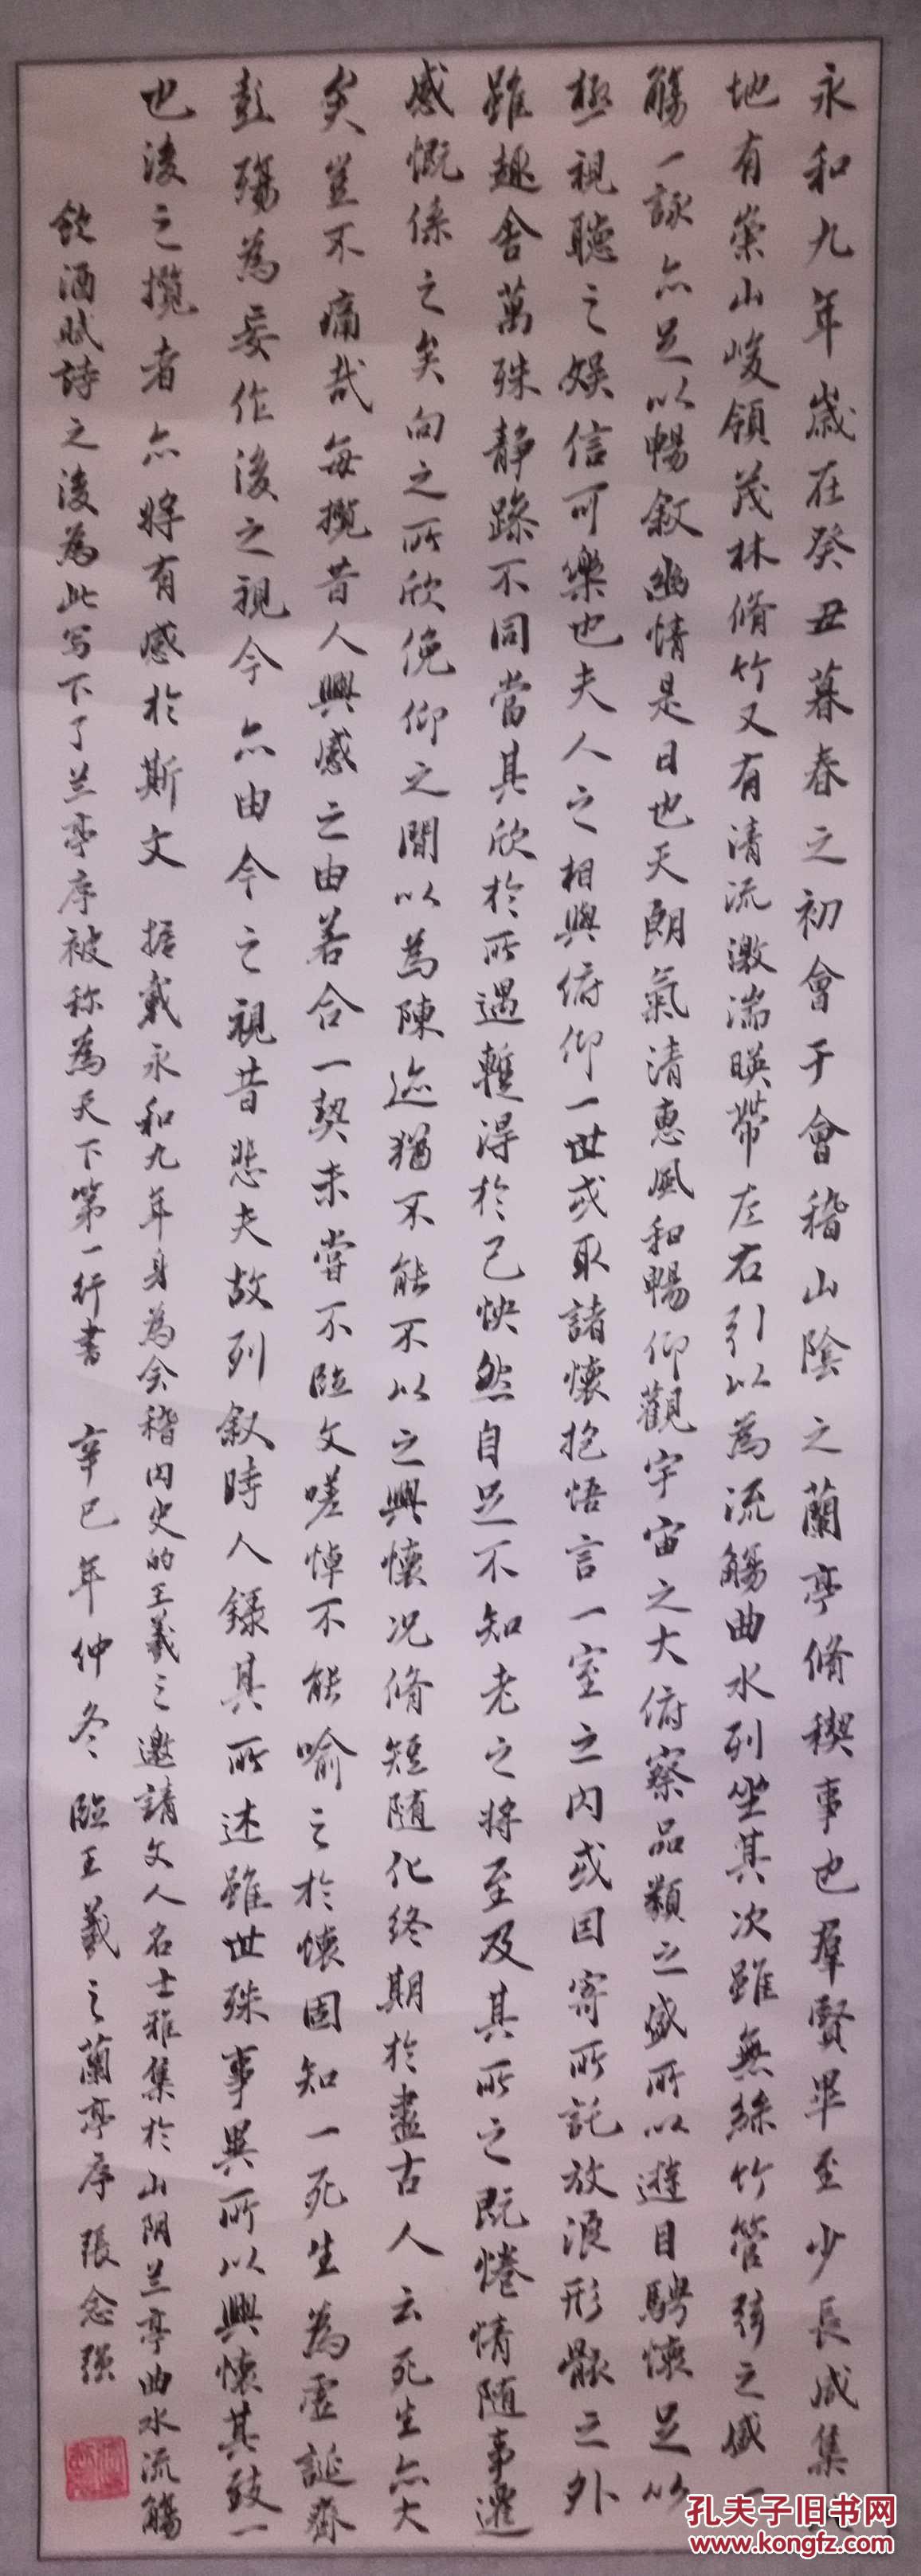 永和九年歲在癸丑暮春之初會于會稽山陰之蘭亭脩稧事也羣賢畢至少長咸集
地有崇山峻領茂林脩竹又有清流激湍暎帶左右引以為流觴曲水列坐其次雖無絲竹管弦之盛一
觴一詠亦足以暢敘幽情是日也天朗氣清惠風和暢仰觀宇宙之大俯察品類之盛所以遊目騁懷足以
極視聽之娛信可樂也夫人之相與俯仰一世或取諸懷抱悟言一室之內或因寄所託放浪形骸之外
雖趣舍萬殊靜躁不同當其欣於所遇暫得於己怏然自足不知老之將至及其所之既惓情隨事遷
感慨係之矣向之所欣俛仰之閒以為陳迹猶不能不以之興懷況脩短隨化終期於盡古人云死生亦大
矣豈不痛哉每攬昔人興感之由若合一契未嘗不臨文嗟悼不能喻之於懷固知一死生為虛誕齊
彭殤為妄作後之視今亦由今之視昔悲夫故列敘時人錄其所述雖世殊事異所以興懷其致一
也後之攬者亦將有感於斯文 據載永和九年身為会稽内史的王羲之邀請文人名士雅集於山阴兰亭曲水流觴
飲酒賦詩之後為此写下了兰亭序被称為天下第一行書 辛巳年仲冬臨王羲之蘭亭序張念强
孔夫子旧书网
www.kongfz.com